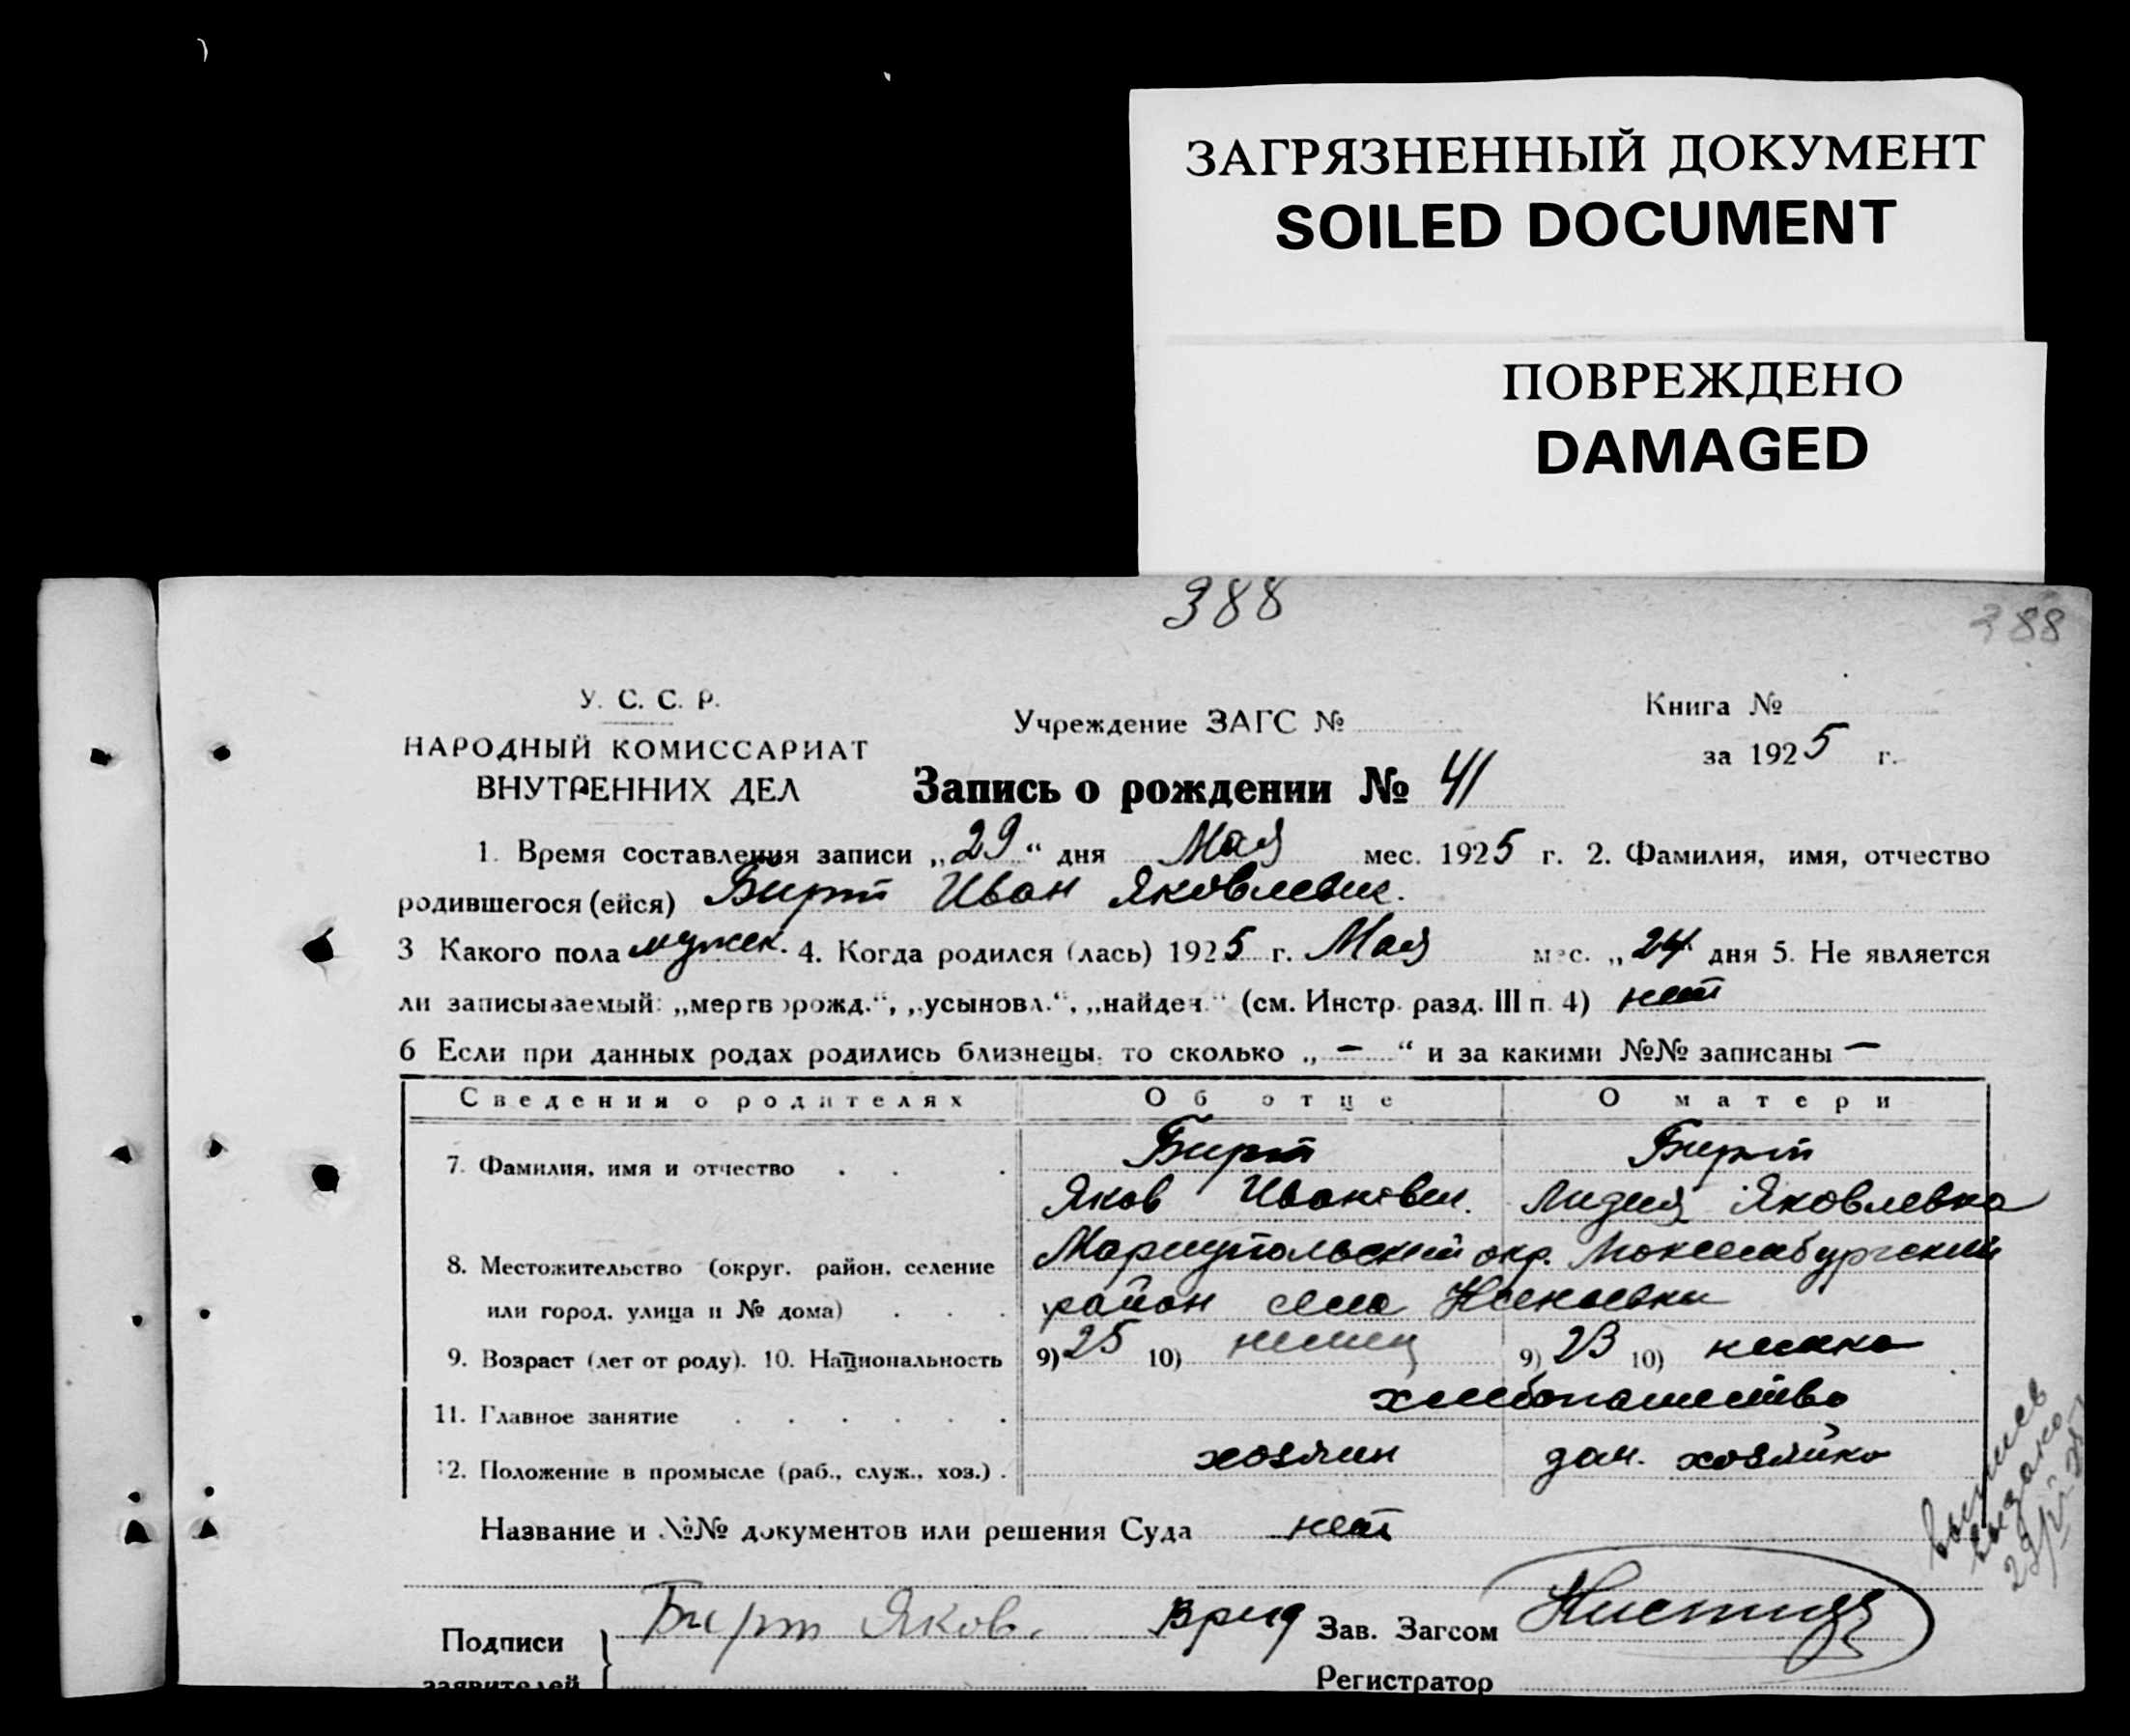 ЗАГРЯЗНЕННЫЙ ДОКУМЕНТ
SOILED DOCUMENT
ПОВРЕЖДЕНО
DAMAGED
388
388
У. С. С. Р.
НАРОДНЫЙ КОМИССАРИАТ
ВНУТРЕННИХ ДЕЛ
Учреждение ЗАГС №
Книга №
за 1925 г.
Запись о рождении № 41
1. Время составления записи „29“ дня Мая мес. 1925 г. 2. Фамилия, имя, отчество
родившегося (ейся) Бирт Иван Яковлевич.
3 Какого пола мужск. 4. Когда родился (лась) 1925 г. Мая мес. „24 дня 5. Не является
ли записываемый: „мертворожд.“, „усыновл.“, „найден.“ (см. Инстр. разд. III п. 4) нет
6 Если при данных родах родились близнецы, то сколько „ — “ и за какими №№ записаны —
Сведения о родителях Об отце О матери
7. Фамилия, имя и отчество Бирт Бирт
Яков Иванович. Лидия Яковлевна
8. Местожительство (округ, район, селение Мариупольский окр. Люксембургский
или город, улица и № дома) район село
9. Возраст (лет от роду). 10. Национальность 9) 25 10) немец 9) 23 10) немка
11. Главное занятие хлебопашество
12. Положение в промысле (раб., служ., хоз.) хозяин дом. хозяйка
Название и №№ документов или решения Суда нет
Подписи Бирт Яков. Врид Зав. Загсом
заявителей Регистратор